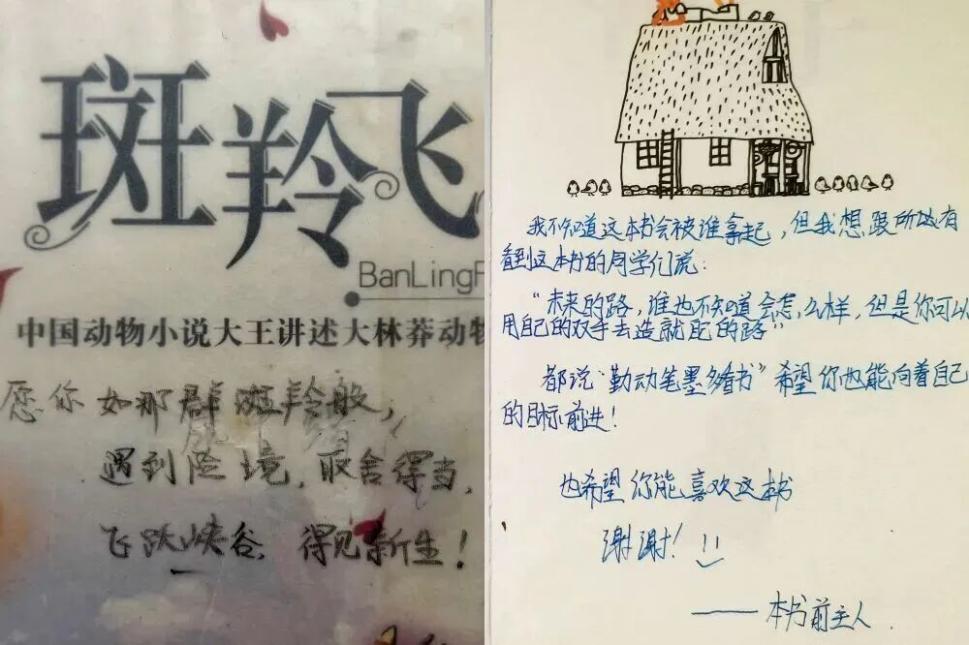 斑羚飞
BanLingF
中国动物小说大王讲述大林莽动物
愿你如那群斑羚般，
遇到险境，取舍得当，
飞跃峡谷，得见新生！
我不知道这本书会被谁拿起，但我想跟所有
看到这本书的同学们说：
“未来的路，谁也不知道会怎么样，但是你可以
用自己的双手去造就自己的路”
都说“勤动笔墨多看书”希望你也能向着自己
的目标前进！
也希望你能喜欢这本书
谢谢！
——本书前主人